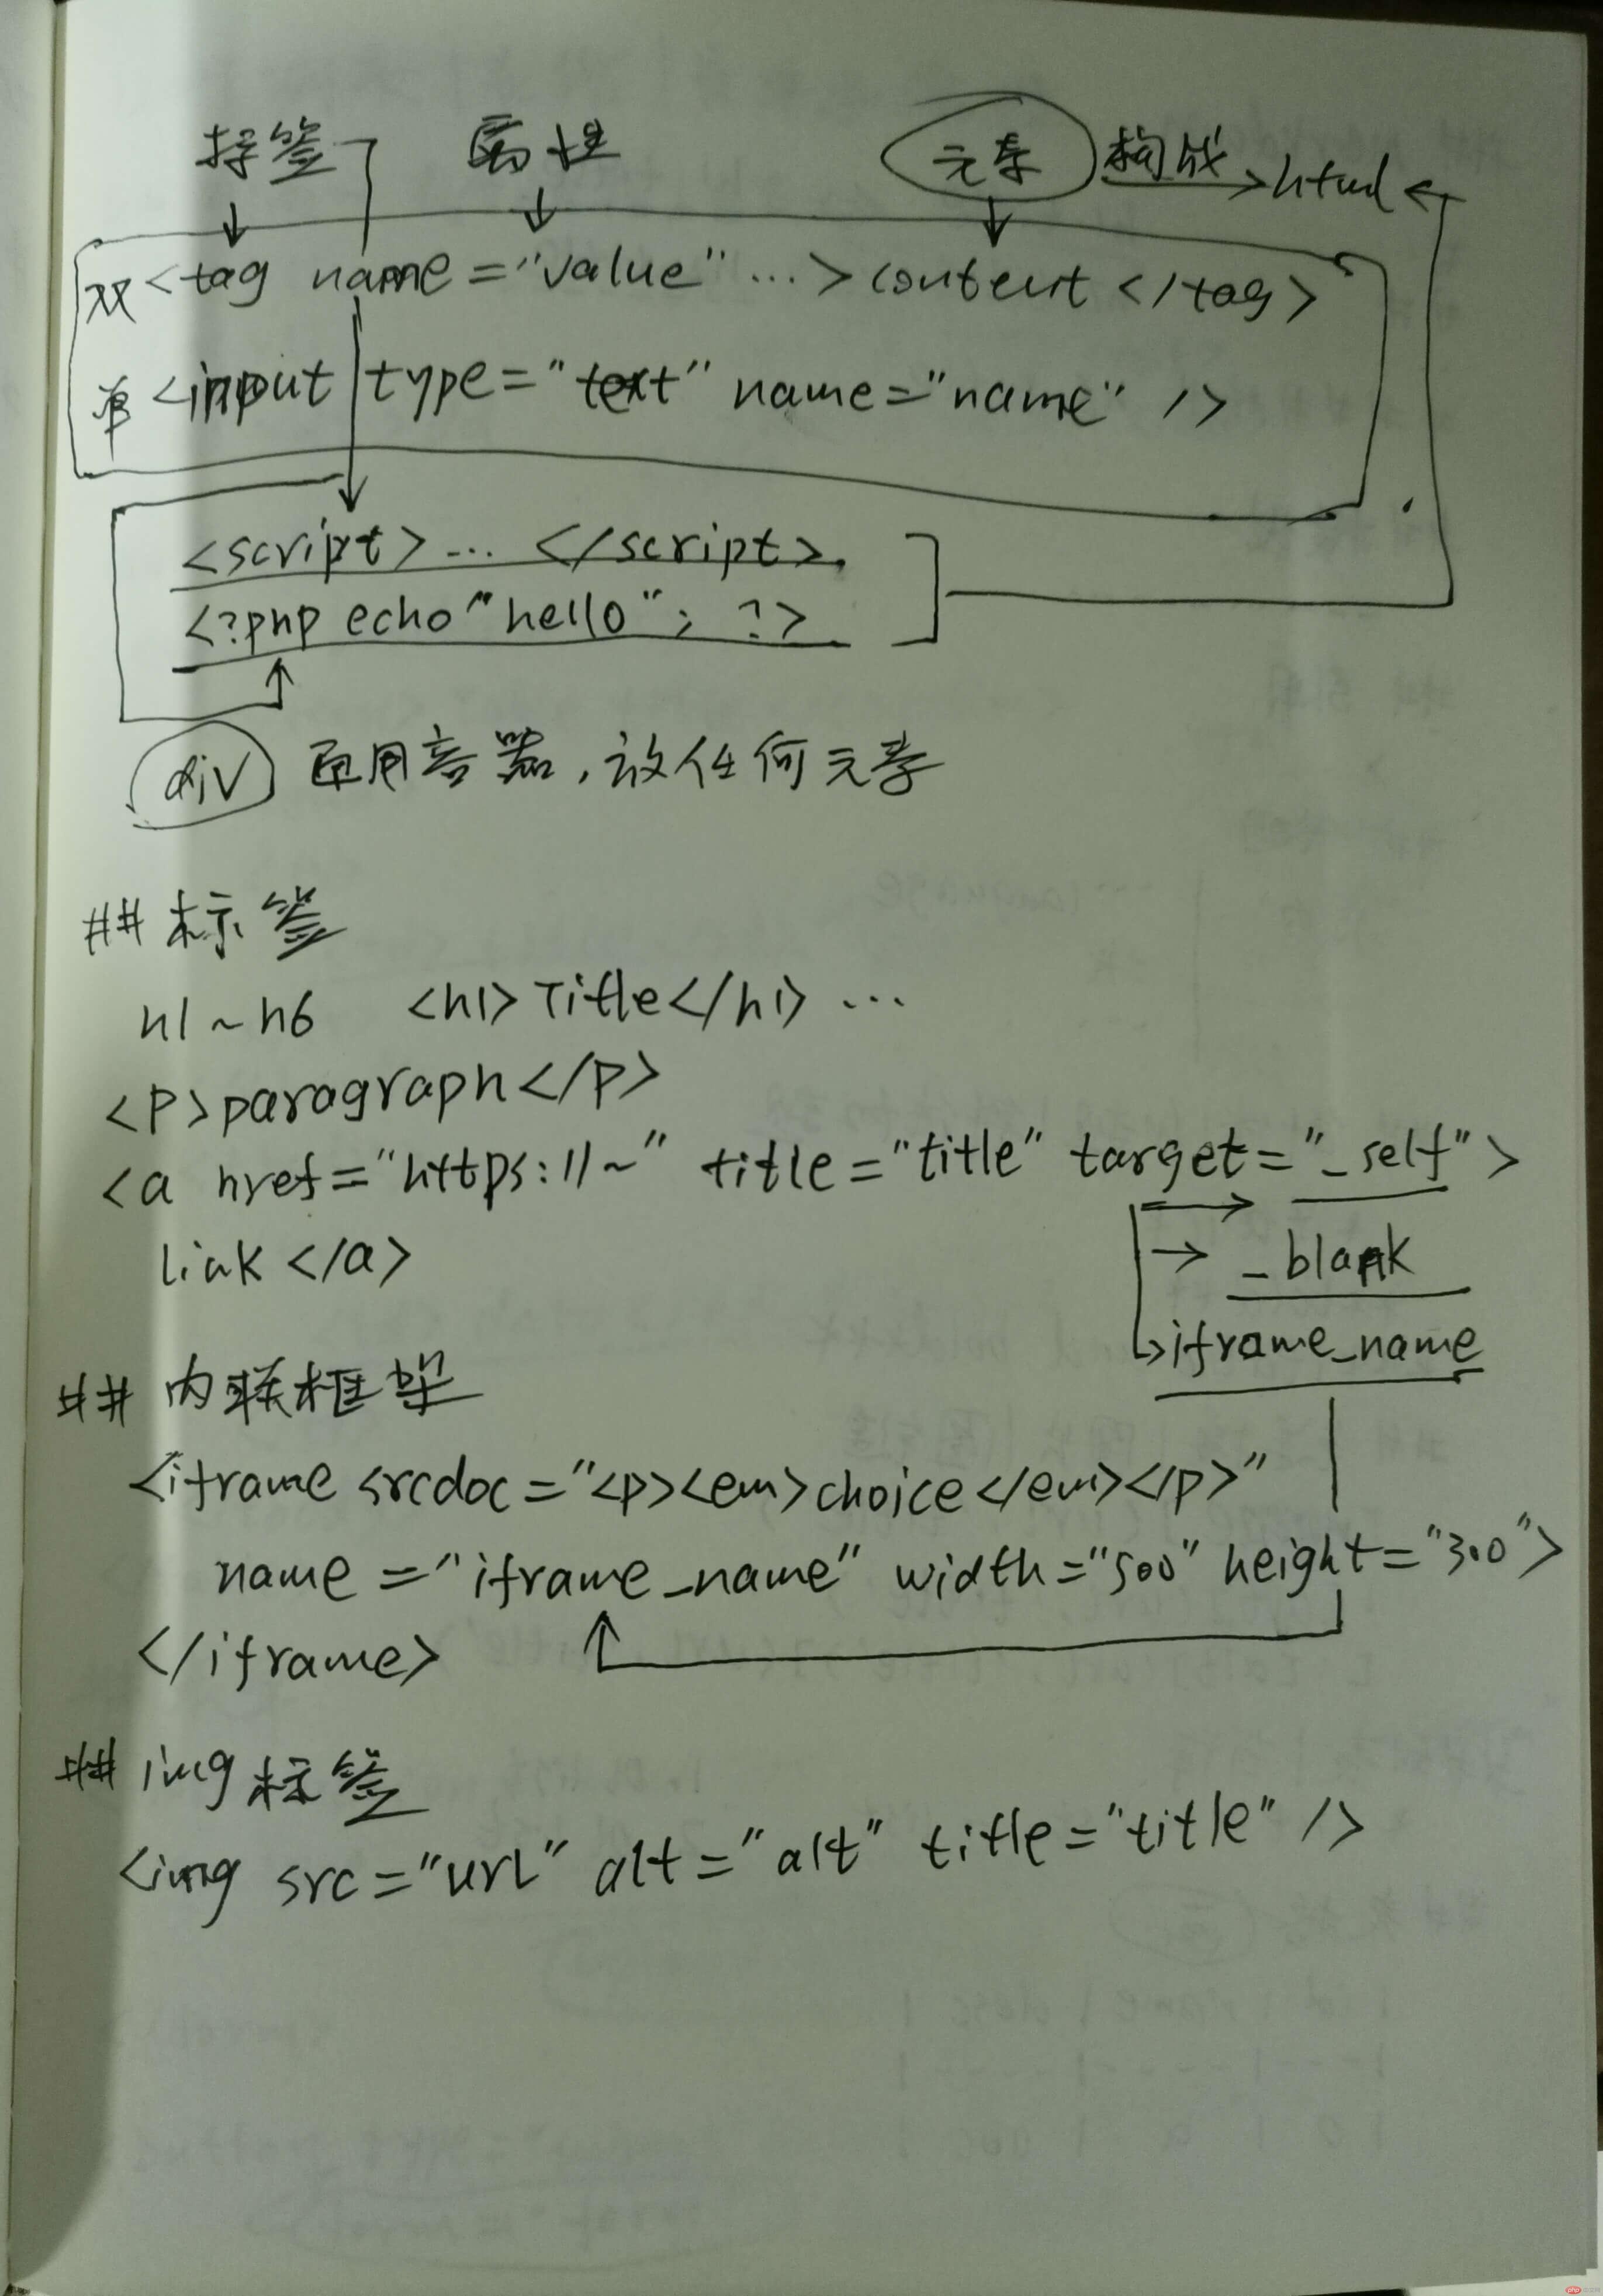 标签 属性 元素 构成 html
双 <tag name="value" ...> content </tag>
单 <input type="text" name="name" />
<script>... </script>
<?php echo "hello"; ?>
div 通用容器,放任何元素
## 标签
h1~h6 <h1>Title</h1> ...
<p>paragraph</p>
<a href="https://~" title="title" target="_self">
link </a>
_blank
iframe_name
## 内联框架
<iframe srcdoc="<p><em>choice</em></p>"
name="iframe_name" width="500" height="300">
</iframe>
## img标签
<img src="url" alt="alt" title="title" />
php